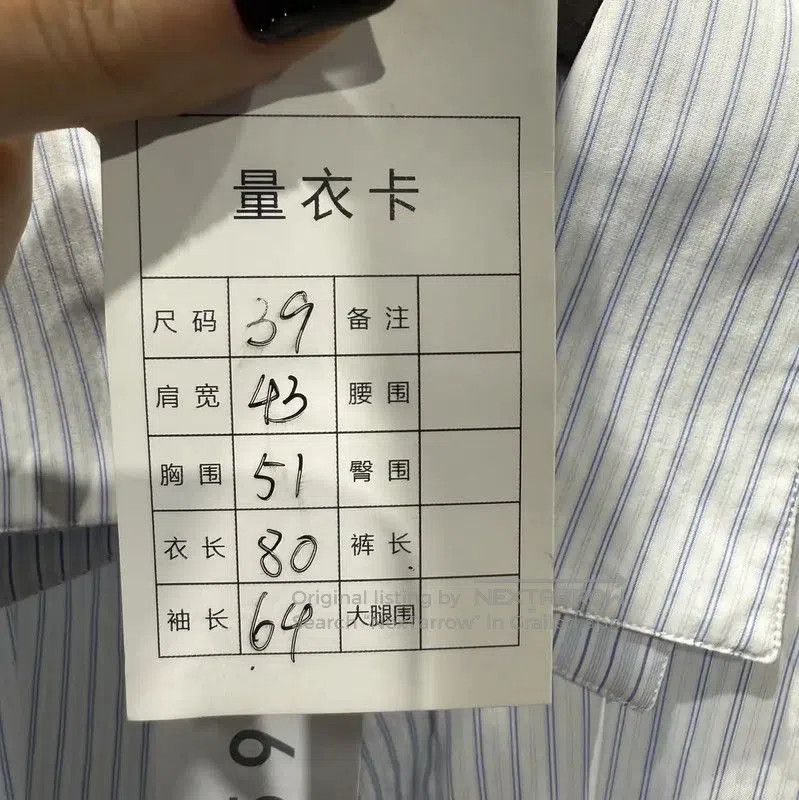 量衣卡
尺码 39 备注
肩宽 43 腰围
胸围 51 臀围
衣长 80 裤长
袖长 64 大腿围
Original listing by NEXTARROW
Search "Nextarrow" In Grailed
69